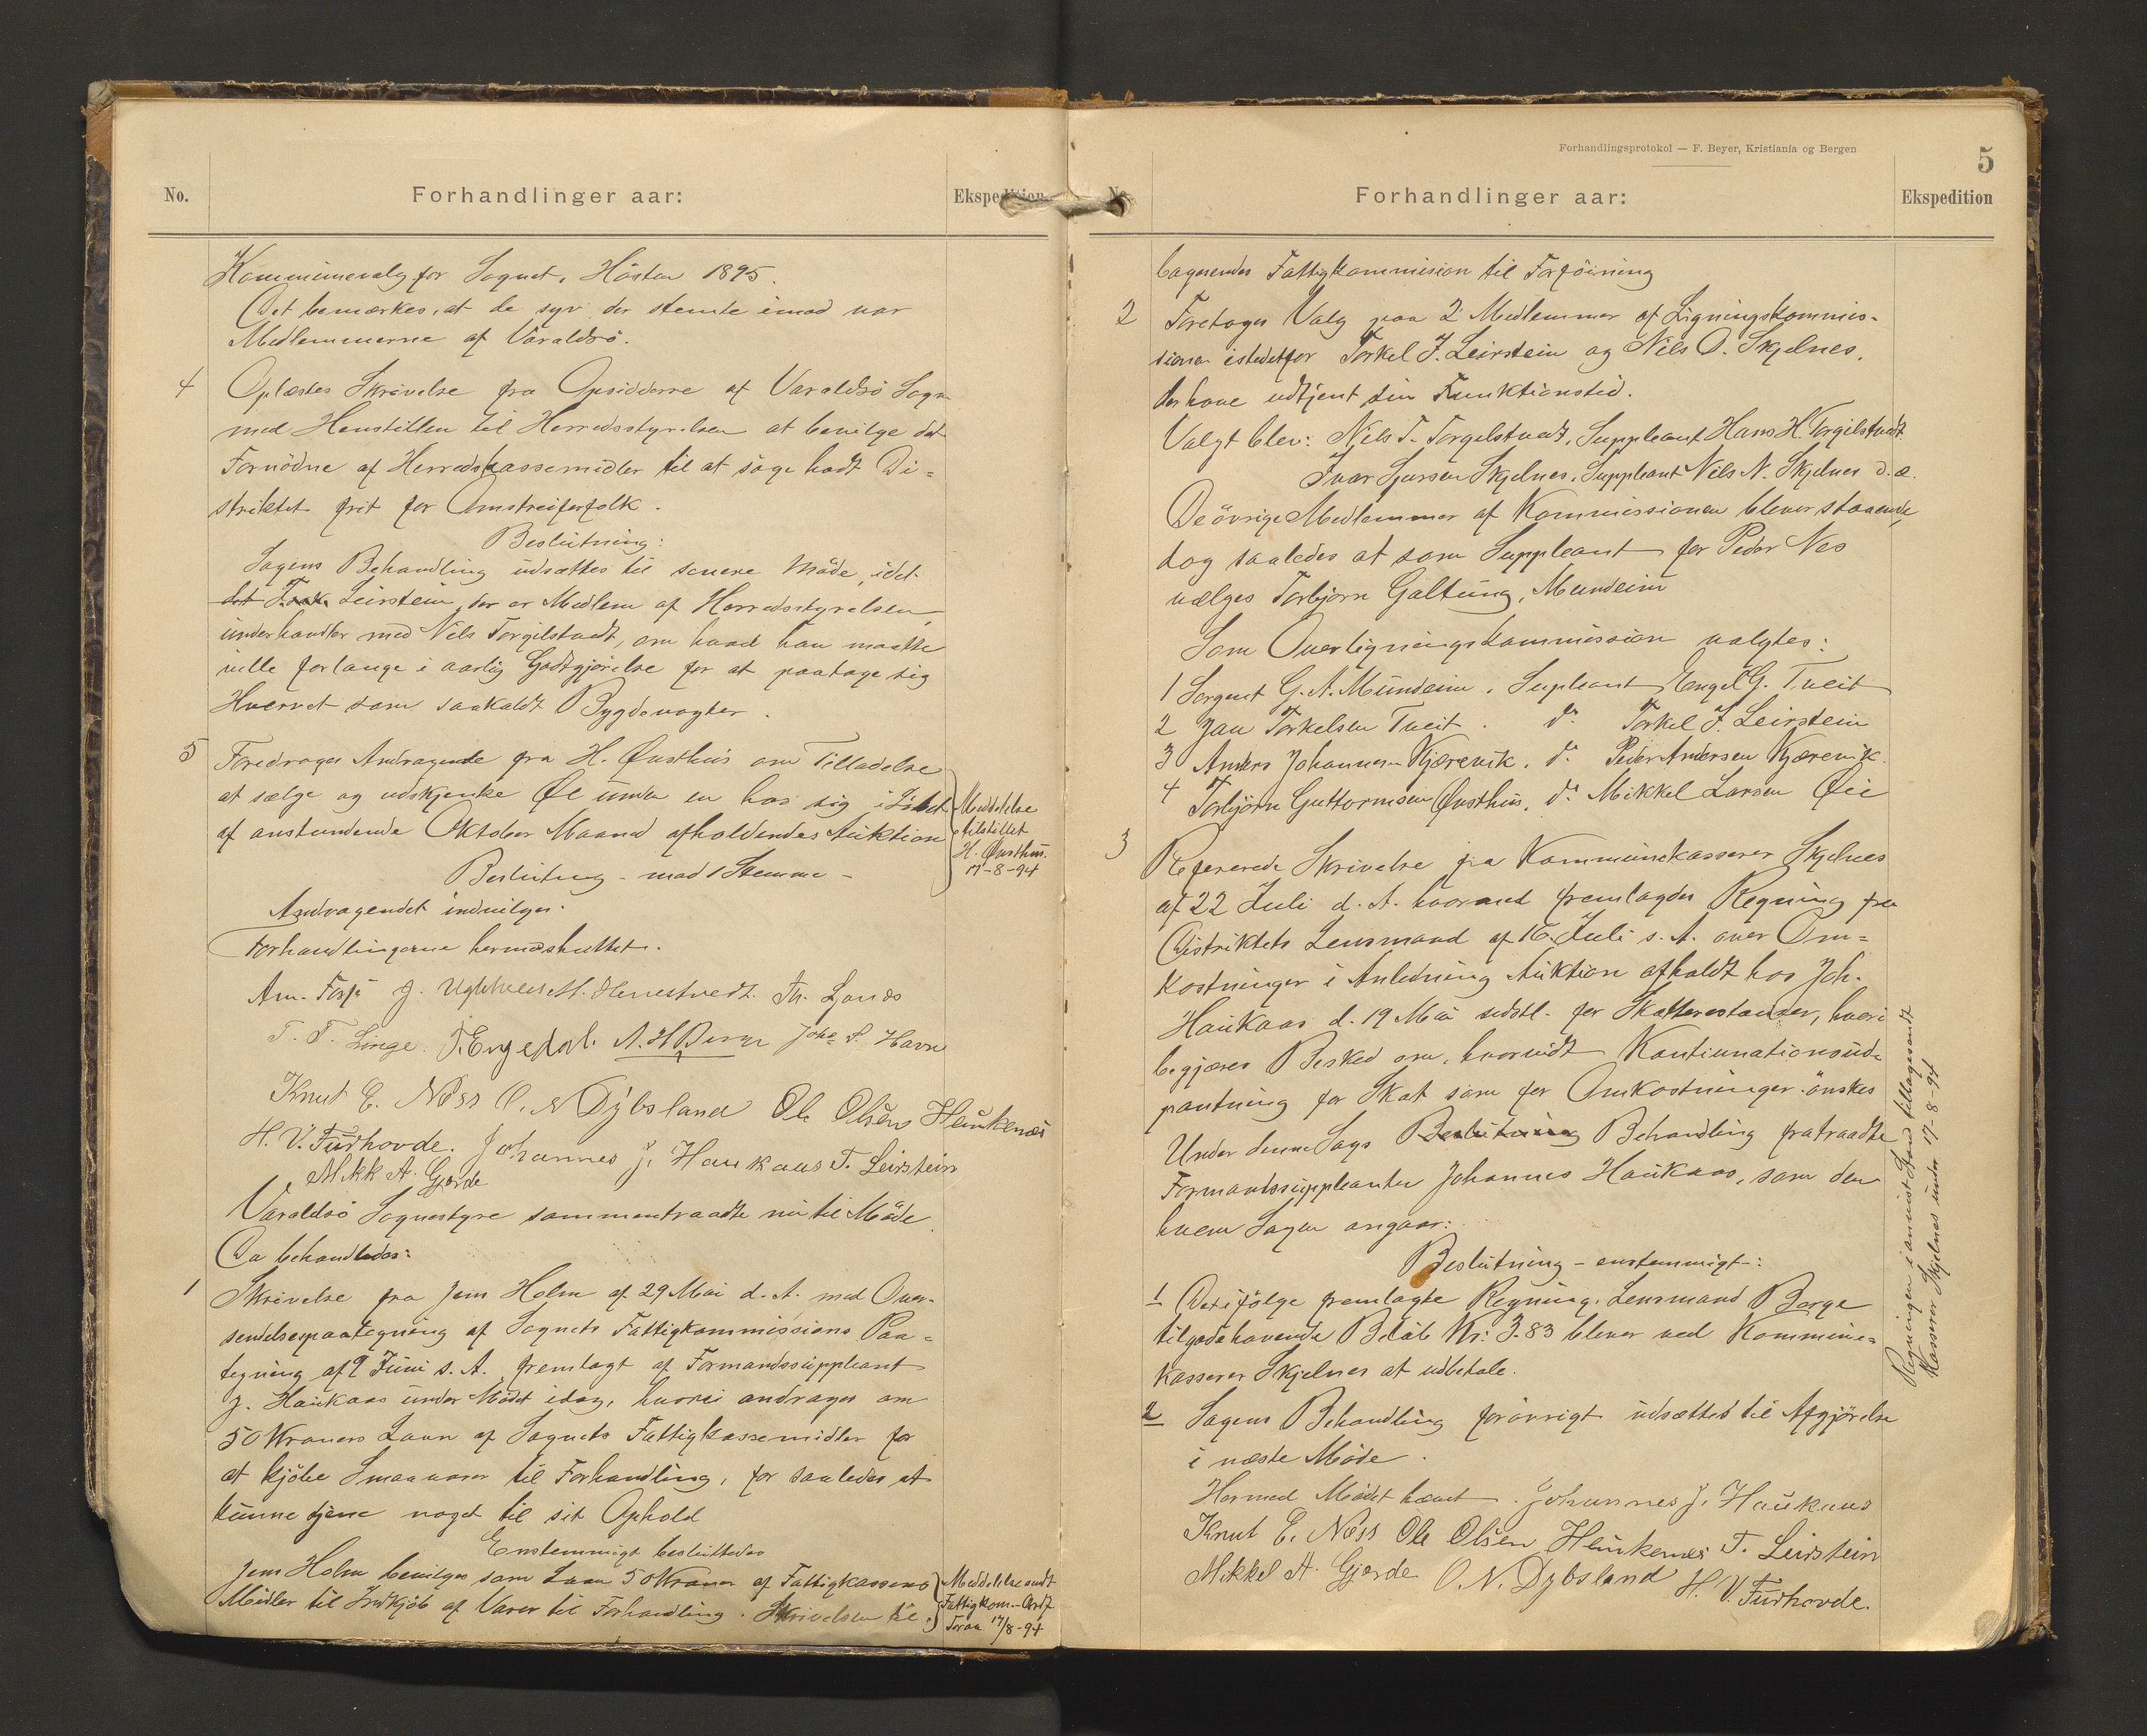 No.
Forhandlinger aar:
Ekspedition
Kommunevalg for Sognet, Hösten 1895.
Det bemærkes, at de syv der stemte imod var
Medlemmerne af Varaldsö.
4 Oplæstes Skrivelse fra Opsiddere af Varaldsö Sogn
med Henstillen til Herredsstyrelsen at bevilge det
Fornödne af Herredskassemidler til at söge holdt Di=
striktet frit for Omstreiferfolk.
Beslutning:
Sagens Behandling udsættes til senere Möde, idet
Leirstein, der er Medlem af Herredsstyrelsen,
underhandler med Nils Torgilstvedt, om hvad han maatte
ville forlange i aarlig Godtgjörelse for at paatage sig
Hvervet som saakaldt Bygdevagter.
5 Foredroges Andragende fra H. Øvsthus om Tilladelse
at sælge og udskjenke Øl under en hos sig i
af anstundende Oktober Maaned afholdendes Auktion
Meddelelse
tilstillet
H. Øvsthus.
17-8-94
Beslutning - mod 1 Stemme -
Andragendet indvilges.
Forhandlingerne hermed sluttet.
J. M. Henestvedt. Th. Ljones
T. T. Linge. T. Engedal. A. H. Berge Johs S. Havn
Knut E. Næss O. N. Dybsland Ole Olsen Heinkenæs
H. V. Furhovde. Johannes J. Haukaas T. Leirstein
Mikk A. Gjerde
Varaldsö Sognestyre sammentraadte nu til Möde
Da behandledes:
1 Skrivelse fra Jens Holm af 29 Mai d. A. med Over-
sendelsespaategning af Sognets Fattigkommissions Paa=
tegning af 9 Juni s. A. fremlagt af Formandssuppleant
J. Haukaas under Mödet idag, hvori andrages om
50 Kroners Laan af Sognets Fattigkassemidler for
at kjöbe Smaavarer til Forhandling, for saaledes at
kunne tjene noget til sit Ophold
Enstemmigt besluttedes
Jens Holm bevilges som Laan 50 Kroner af Fattigkassens
Midler til Indkjöb af Varer til Forhandling. Skrivelsen til
Meddelelse sendt
Fattigkom.-Ordf.
17/8-94
Forhandlingsprotokol — F. Beyer, Kristiania og Bergen
5
No.
Forhandlinger aar:
Ekspedition
Fattigkommision til Forföining
2 Foretoges Valg paa 2 Medlemmer af Ligningskommis-
sionen istedetfor Torkel J. Leirstein og Nils O. Skjelnes,
der have udtjent sin Funktionstid.
Valgt blev: Nils T. Torgilstvedt, Suppleant Hans H. Torgilstvedt
Ivar Sjursen Skjelnes, Suppleant Nils N. Skjelnes d. æ.
De övrige Medlemmer af Kommissionen bliver staaende,
dog saaledes at som Suppleant for Peder Nes
vælges Torbjörn Galtung, Mundeim
Som Overligningskommission valgtes:
1 Sergent G. A. Mundeim, Supleant Engel G. Tveit
2 Jan Torkelsen Tveit. do Torkel J. Leirstein
3 Anders Johannesen Kjærevik, do Peder Andersen Kjærevik.
4 Torbjörn Guttormsen Øvsthus, do Mikkel Larsen Øie
3 Refererede Skrivelse fra Kommunekasserer Skjelnes
af 22 Juli d. A. hvormed fremlagdes Regning fra
Distriktets Lensmand af 16. Juli s. A. over Om=
kostninger i Anledning Auktion afholdt hos Joh.
Haukaas d. 19 Mai sidstl. for Skatterestancer, hvori
begjæres Besked om, hvorvidt Kontinuationsud=
pantning for Skat som for Omkostninger önskes
Under denne Sags Beslutning Behandling fratraadte
Formandssuppleanten Johannes Haukaas, som den
hvem Sagen angaar:
Beslutning - enstemmigt-:
1 Det ifölge fremlagte Regning. Lensmand Berge
tilgodehavende Belöb Kr: 3.83 bliver ved Kommune=
kasserer Skjelnes at udbetale.
2 Sagens Behandling forövrigt udsættes til Afgjörelse
i næste Möde.
Hermed Mödet hævet. Johannes J. Haukaas
Knut E. Næss Ole Olsen Heinkenes T. Leirstein
Mikkel A. Gjerde O. N. Dybsland H. V. Furhovde.
Regningen i anvist Stand tilbagesendt
Kasserer Skjelnes under 17-8-94